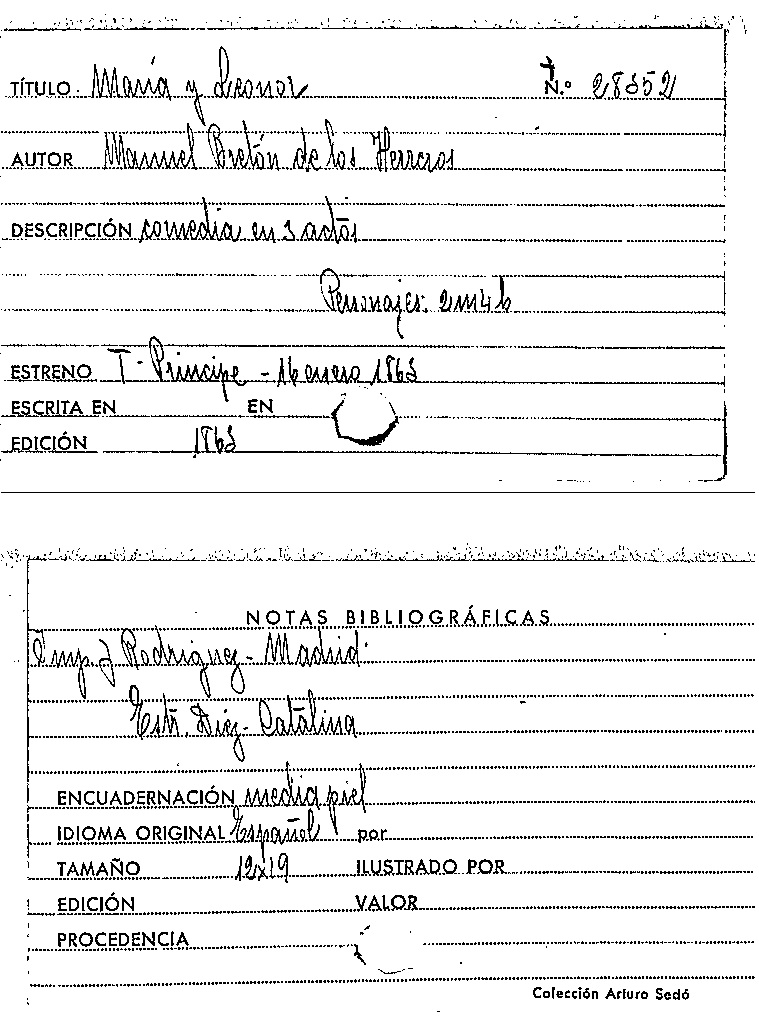 TÍTULO María y Leonor N.º 28352
AUTOR Manuel Bretón de los Herreros
DESCRIPCIÓN comedia en 3 actos
Personajes: 2m 4h
ESTRENO T. Príncipe - 16 enero 1863
ESCRITA EN EN
EDICIÓN 1863
NOTAS BIBLIOGRÁFICAS
Imp. J Rodriguez - Madrid
Estr. Diez - Catalina
ENCUADERNACIÓN media piel
IDIOMA ORIGINAL Español por
TAMAÑO 12x19 ILUSTRADO POR
EDICIÓN VALOR
PROCEDENCIA
Colección Arturo Sedó